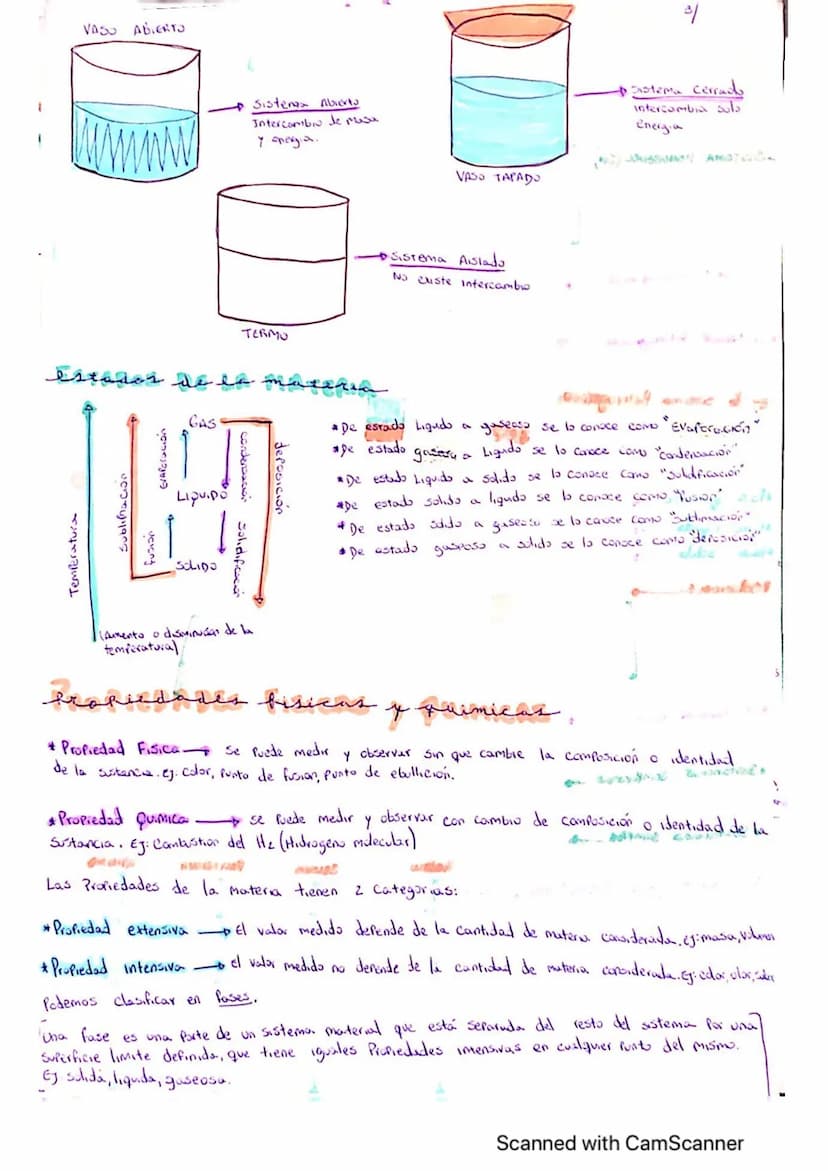 3/
VASO ABIERTO
Sistema Abierto
Intercambio de masa
y energia.
Sistema Cerrado
intercambia solo
energia
VASO TAPADO
Sistema Aislado
No existe intercambio
TERMO
Estados de la materia
Temperatura
Sublimación
Evaporación
fusión
GAS
LIQUIDO
SOLIDO
condensación
solidificación
deposición
(Aumento o disminución de la
temperatura)
*De estado liquido a gaseoso se lo conoce como "Evaporación"
*De estado gaseoso a liquido se lo conoce como "condensación"
*De estado liquido a solido se lo conoce como "solidificación"
*De estado solido a liquido se lo conoce como "fusion"
*De estado solido a gaseoso se lo conoce como "Sublimación"
*De estado gaseoso a solido se lo conoce como "deposición"
Propiedades Fisicas y Quimicas
* Propiedad Fisica → se puede medir y observar sin que cambie la composición o identidad
de la sustancia. ej: color, punto de fusion, punto de ebullición.
*Propiedad Quimica → se puede medir y observar con cambio de composición o identidad de la
sustancia. Ej: Combustion del H2 (Hidrogeno molecular)
Las Propiedades de la materia tienen 2 categorias:
*Propiedad extensiva → El valor medido depende de la cantidad de materia considerada. ej: masa, volumen
*Propiedad intensiva → el valor medido no depende de la cantidad de materia considerada. Ej: color, olor, sabor
Podemos clasificar en fases.
Una fase es una parte de un sistema material que está separada del resto del sistema por una
superficie limite definida, que tiene iguales Propiedades intensivas en cualquier punto del mismo.
Ej solida, liquida, gaseosa.
Scanned with CamScanner